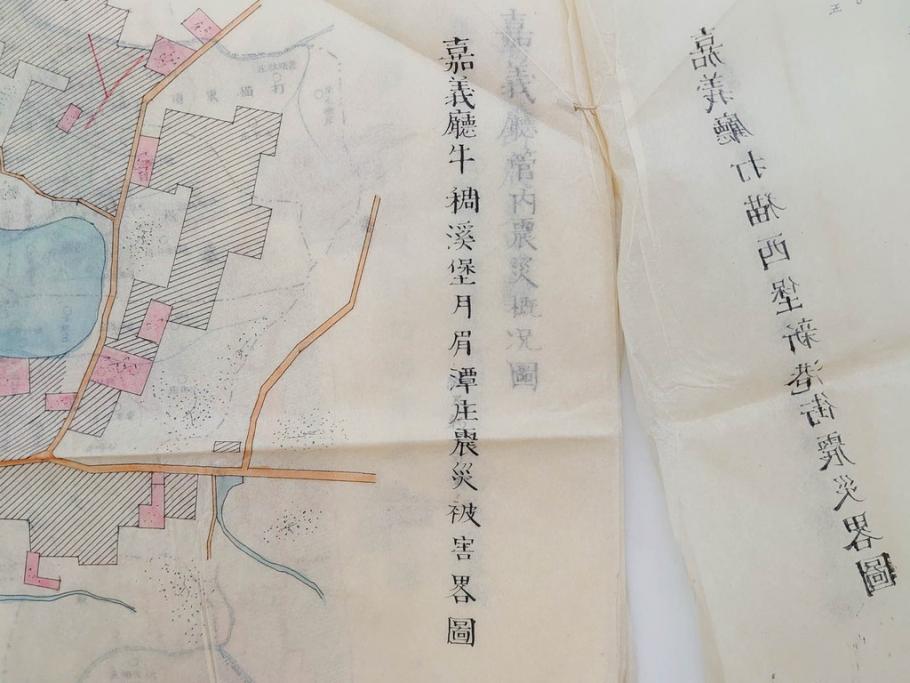 嘉義廳打猫西堡新港街震災畧圖
嘉義廳管内震災概况圖
嘉義廳牛稠溪堡月眉潭庄震災被害畧圖